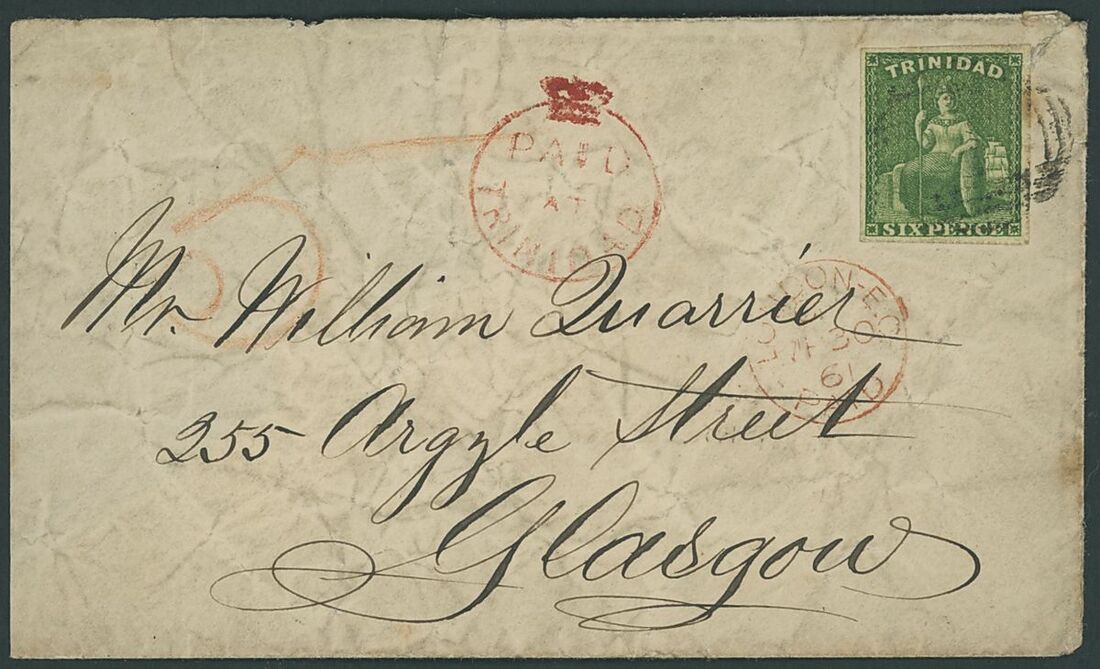 TRINIDAD
SIX PENCE
PAID
AT
TRINIDAD
LONDON-EC
30
61
PAID
Mr. William Quarrier
255 Argyle Street
Glasgow